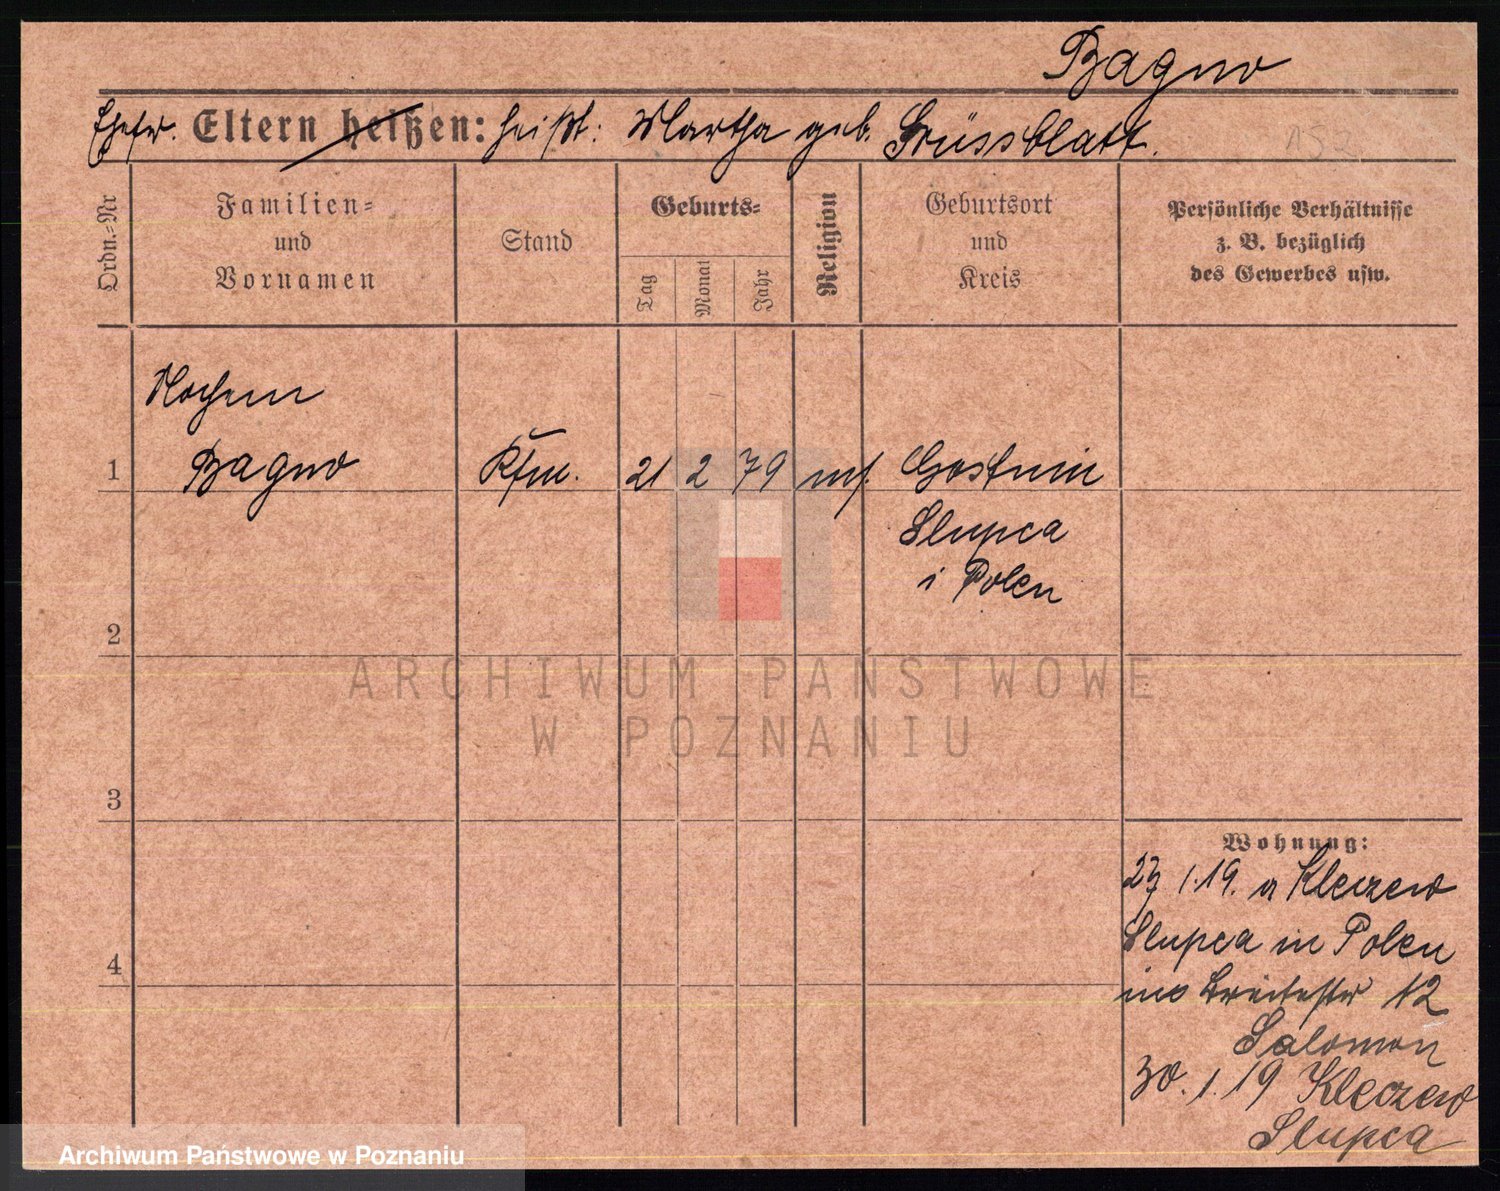 Bagno
Ehefr. Eltern heißen: heißt: Martha geb. Grüssblatt.
152
Ordn.=Nr
Familien=
und
Vornamen
Stand
Geburts=
Tag
Monat
Jahr
Religion
Geburtsort
und
Kreis
Persönliche Verhältnisse
z. B. bezüglich
des Gewerbes usw.
Nochem
1 Bagno Kfm. 21 2 79 mos. Gostnin
Slupca
i Polen
2
3
4
Wohnung:
27 1.19. a Kleczew
Slupca in Polen
Breitestr 12
Salomon
30. 1. 19 Kleczew
Slupca
ARCHIWUM PAŃSTWOWE
W POZNANIU
Archiwum Państwowe w Poznaniu